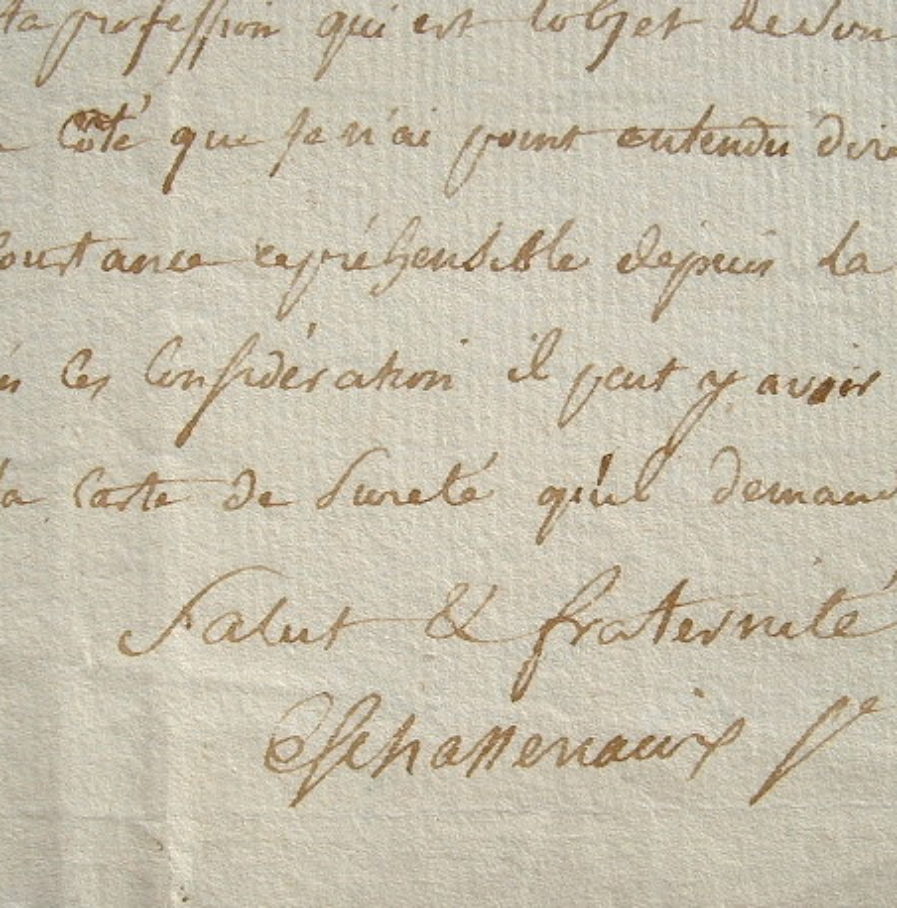 ta profession qui est lobjet de son
côté que je n'ai point entendu dire
constance repréhensible depuis la
ces considération il peut y avoir
la carte de sureté qu'il demand
Salut & fraternité